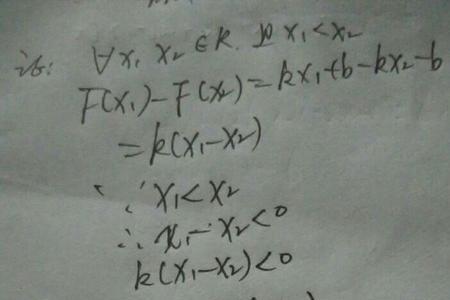 证: ∀x₁ x₂ ∈ R. 且 x₁<x₂
F(x₁)-F(x₂)=kx₁+b-kx₂-b
=k(x₁-x₂)
∵ x₁<x₂
∴ x₁-x₂<0
k(x₁-x₂)<0